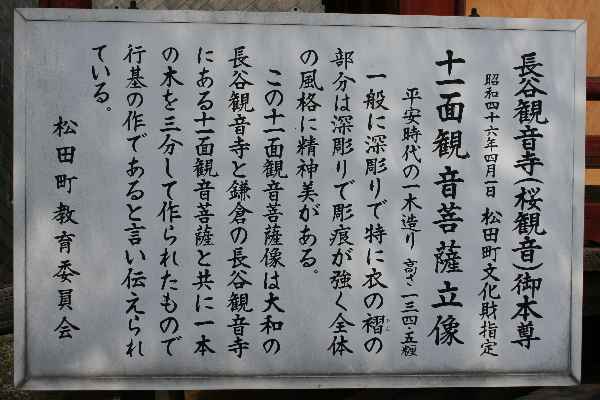 長谷観音寺(桜観音)御本尊
昭和四十六年四月一日 松田町文化財指定
十一面観音菩薩立像
平安時代の一木造り 高さ一三四・五糎
一般に深彫りで特に衣の褶の
部分は深彫りで彫痕が強く全体
の風格に精神美がある。
この十一面観音菩薩像は大和の
長谷観音寺と鎌倉の長谷観音寺
にある十一面観音菩薩と共に一本
の木を三分して作られたもので
行基の作であると言い伝えられ
ている。
松田町教育委員会